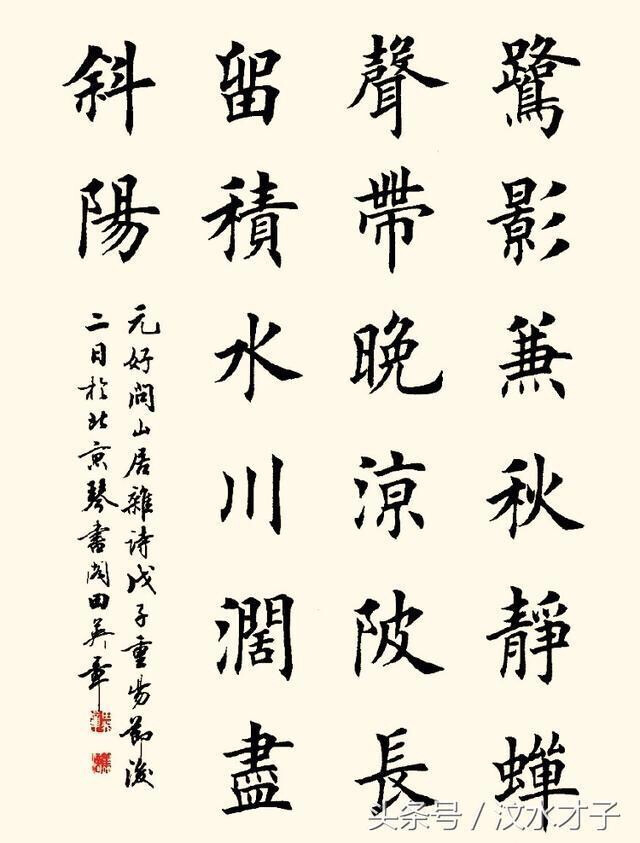 鷺影兼秋靜蟬
聲帶晚涼陂長
留積水川濶盡
斜陽
元好問山居雜詩戊子重陽節後
二日於北京琴書閣田英章
头条号 / 汶水才子